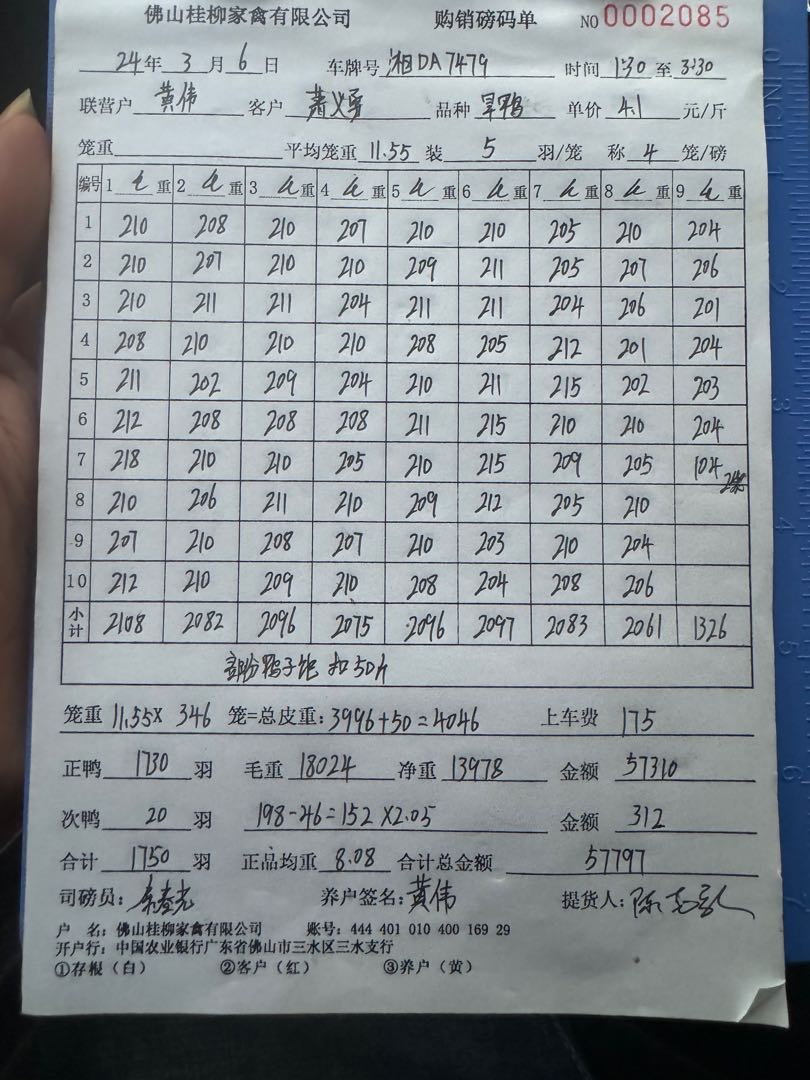 佛山桂柳家禽有限公司 购销磅码单 NO 0002085
24年 3月 6日 车牌号 湘DA7479 时间 1:30 至 3:30
联营户 黄伟 客户 萧义勇 品种 旱鸭 单价 4.1 元/斤
笼重 平均笼重 11.55 装 5 羽/笼 称 4 笼/磅
编号 1 重 2 重 3 重 4 重 5 重 6 重 7 重 8 重 9 重
1 210 208 210 207 210 210 205 210 204
2 210 207 210 210 209 211 205 207 206
3 210 211 211 204 211 211 204 206 201
4 208 210 210 210 208 205 212 201 204
5 211 202 209 204 210 211 215 202 203
6 212 208 208 208 211 215 210 210 204
7 218 210 210 205 210 215 209 205 104
8 210 206 211 210 209 212 205 210
9 207 210 208 207 210 203 210 204
10 212 210 209 210 208 204 208 206
小计 2108 2082 2096 2075 2096 2097 2083 2061 1326
部份鸭子饱 扣50斤
笼重 11.55X 346 笼=总皮重:3996+50=4046 上车费 175
正鸭 1730 羽 毛重 18024 净重 13978 金额 57310
次鸭 20 羽 198-46=152X2.05 金额 312
合计 1750 羽 正品均重 8.08 合计总金额 57797
司磅员: 养户签名:黄伟 提货人:陈
户 名:佛山桂柳家禽有限公司 账号:444 401 010 400 169 29
开户行:中国农业银行广东省佛山市三水区三水支行
①存根(白) ②客户(红) ③养户(黄)